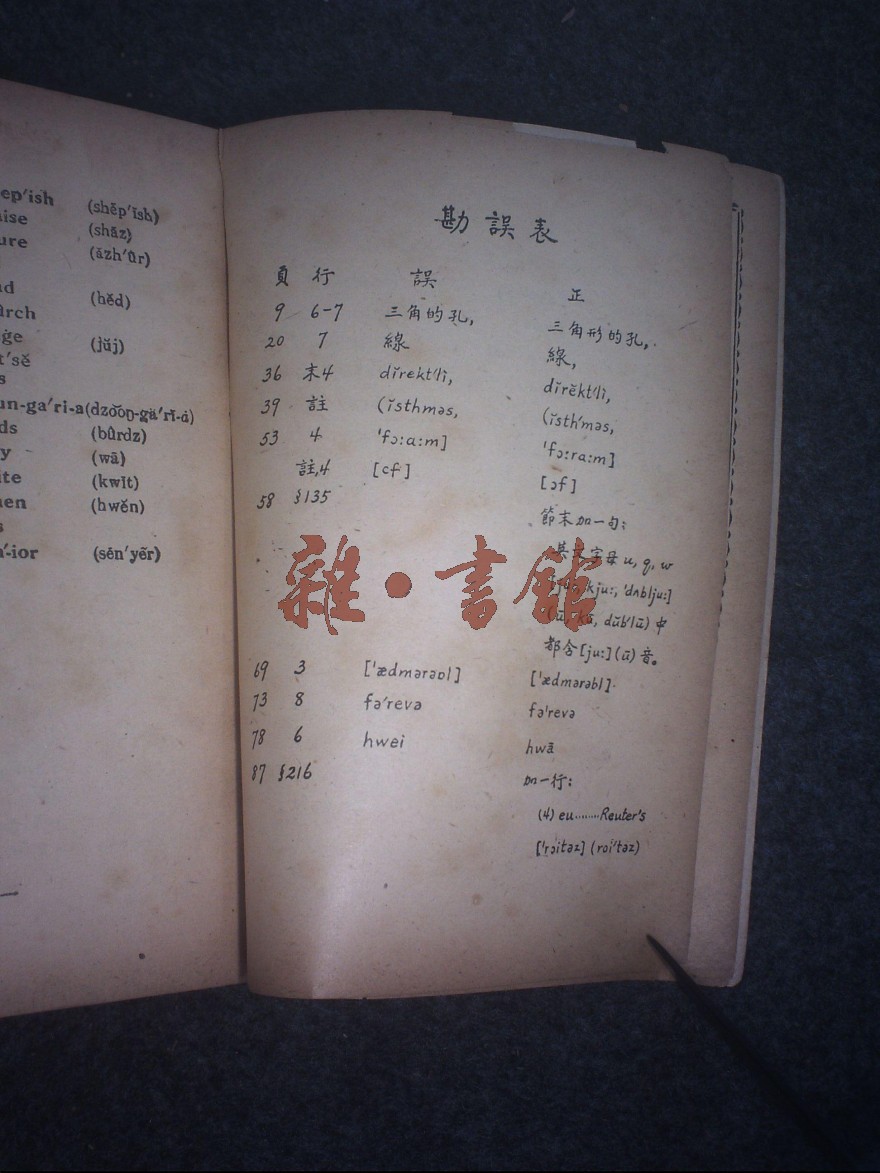 ep′ish (shĕp′ĭsh)
aise (shāz)
ure (ăzh′ûr)
ad (hĕd)
ûrch
ge (jŭj)
t′sĕ
s
un-ga′ri-a(dzo͝oŋ-gä′rĭ-ȧ)
ds (bûrdz)
y (wā)
ite (kwīt)
en (hwĕn)
s
-ior (sēn′yẽr)
勘誤表
頁 行 誤 正
9 6-7 三角的孔, 三角形的孔,
20 7 線 線,
36 末4 dĭrekt′lĭ, dĭrĕkt′lĭ,
39 註 (ĭsthməs, (ĭsth′məs,
53 4 'fɔ:a:m] 'fɔ:ra:m]
註,4 [cf] [ɔf]
58 §135 節末加一句:
英文字母 u, q, w
kju:, 'dʌblju:]
kū, dŭb′lū) 中
都含[ju:](ū)音。
雜·書館
69 3 ['ædmərəɒl] ['ædmərəbl].
73 8 fə′revə fə'revə
78 6 hwei hwā
87 §216 加一行:
(4) eu········Reuter's
['rɔitəz] (roi′təz)